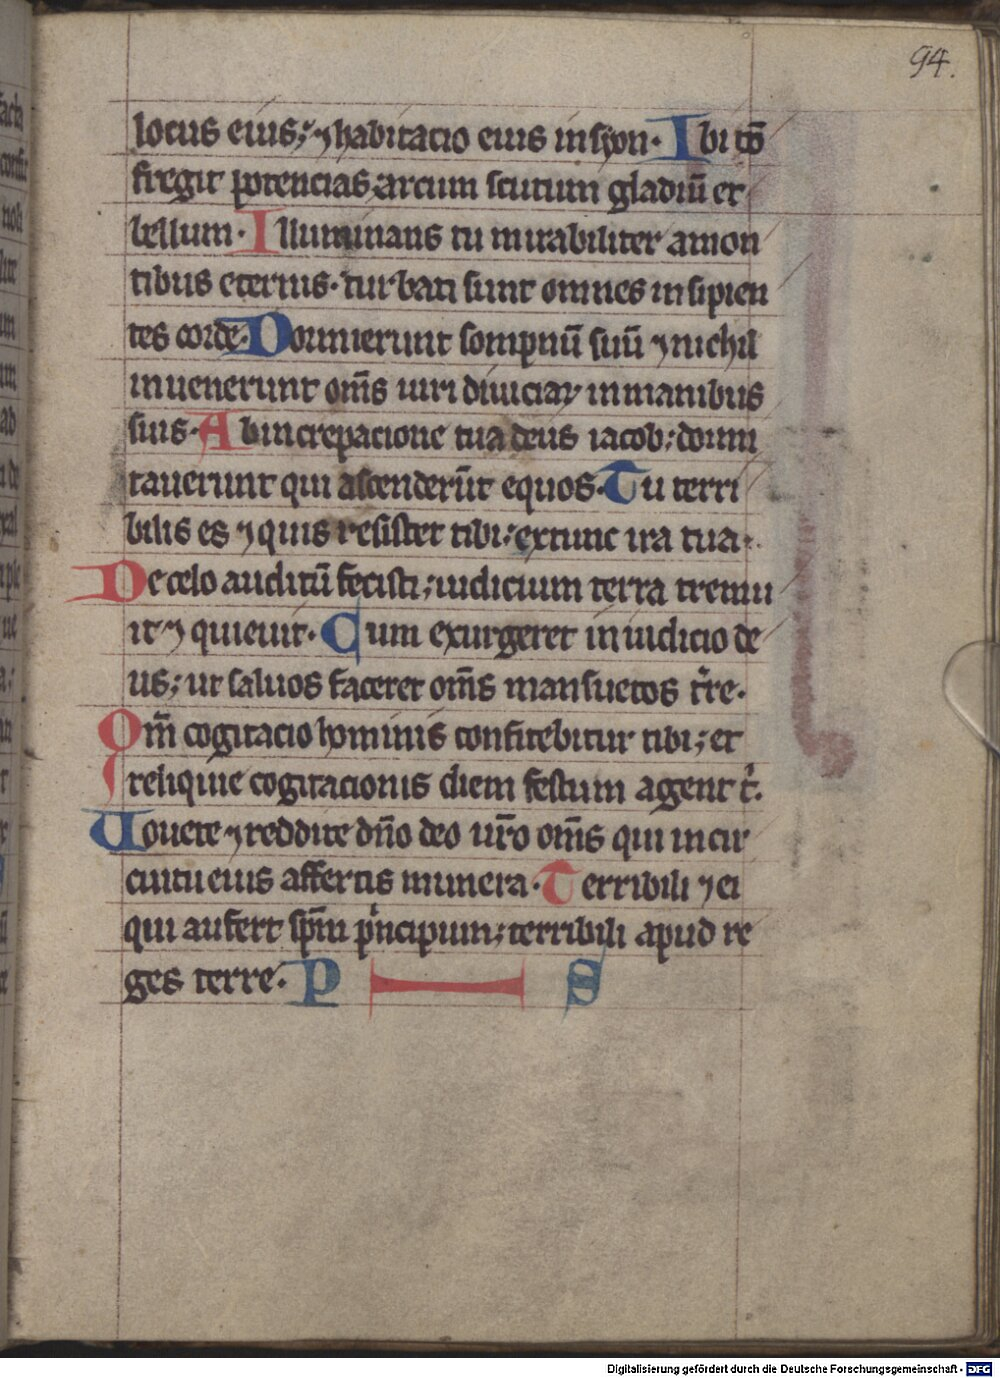 94.
locus eius; ⁊ habitacio eius in syon. Ibi cō
fregit potencias arcum scutum gladiū et
bellum. Illuminans tu mirabiliter a mon
tibus eternis. turbati sunt omnes insipien
tes corde. Dormierunt sompnū suū ⁊ nichil
inuenerunt om̄s uiri diuiciaꝝ in manibus
suis. Ab increpacione tua deus iacob; dormi
tauerunt qui ascenderūt equos. Tu terri
bilis es ⁊ quis resistet tibi; extunc ira tua.
De celo auditū fecisti; iudicium terra tremu
it ⁊ quieuit. Cum exurgeret in iudicio de
us; ut saluos faceret om̄s mansuetos t̄re.
Om̄ cogitacio hominis confitebitur tibi; et
reliquie cogitacionis diem festum agent t̄.
Uouete ⁊ reddite dn̄o deo ur̄o om̄s qui in cir
cuitu eius affertis munera. Terribili ⁊ ei
qui aufert sp̄m p̄ncipum; terribili apud re
ges terre. P I S
Digitalisierung gefördert durch die Deutsche Forschungsgemeinschaft - DFG